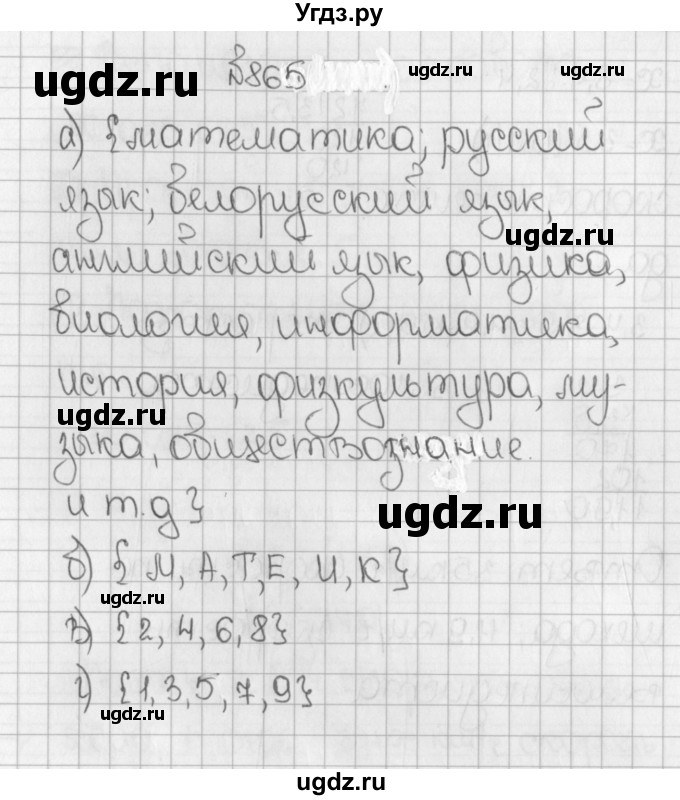 Угдз.ру
№865
ugdz.ru
ugdz.ru
ugdz.ru
а) {математика; русский
язык; белорусский язык,
ugdz.ru
английский язык, физика,
биология, информатика,
история, физкультура, му-
ugdz.ru
зыка, обществознание.
и т.д }
ugdz.ru
б) {М, А, Т, Е, И, К}
ugdz.ru
в) {2, 4, 6, 8}
г) {1, 3, 5, 7, 9}
ugdz.ru
ugdz.ru